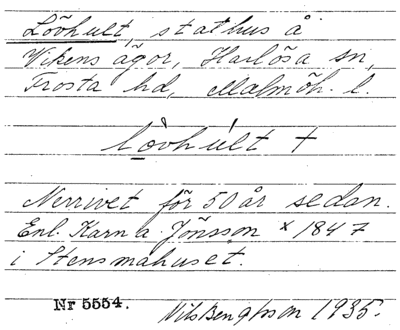 Lövhult, stathus å
Vikens ägor, Harlösa sn,
Frosta hd, Malmöh. l.
lövhult +
Nerrivet för 50 år sedan.
Enl. Karna Jönsson × 1847
i Stensmahuset.
Nr 5554. Nils Bengtsson 1935.